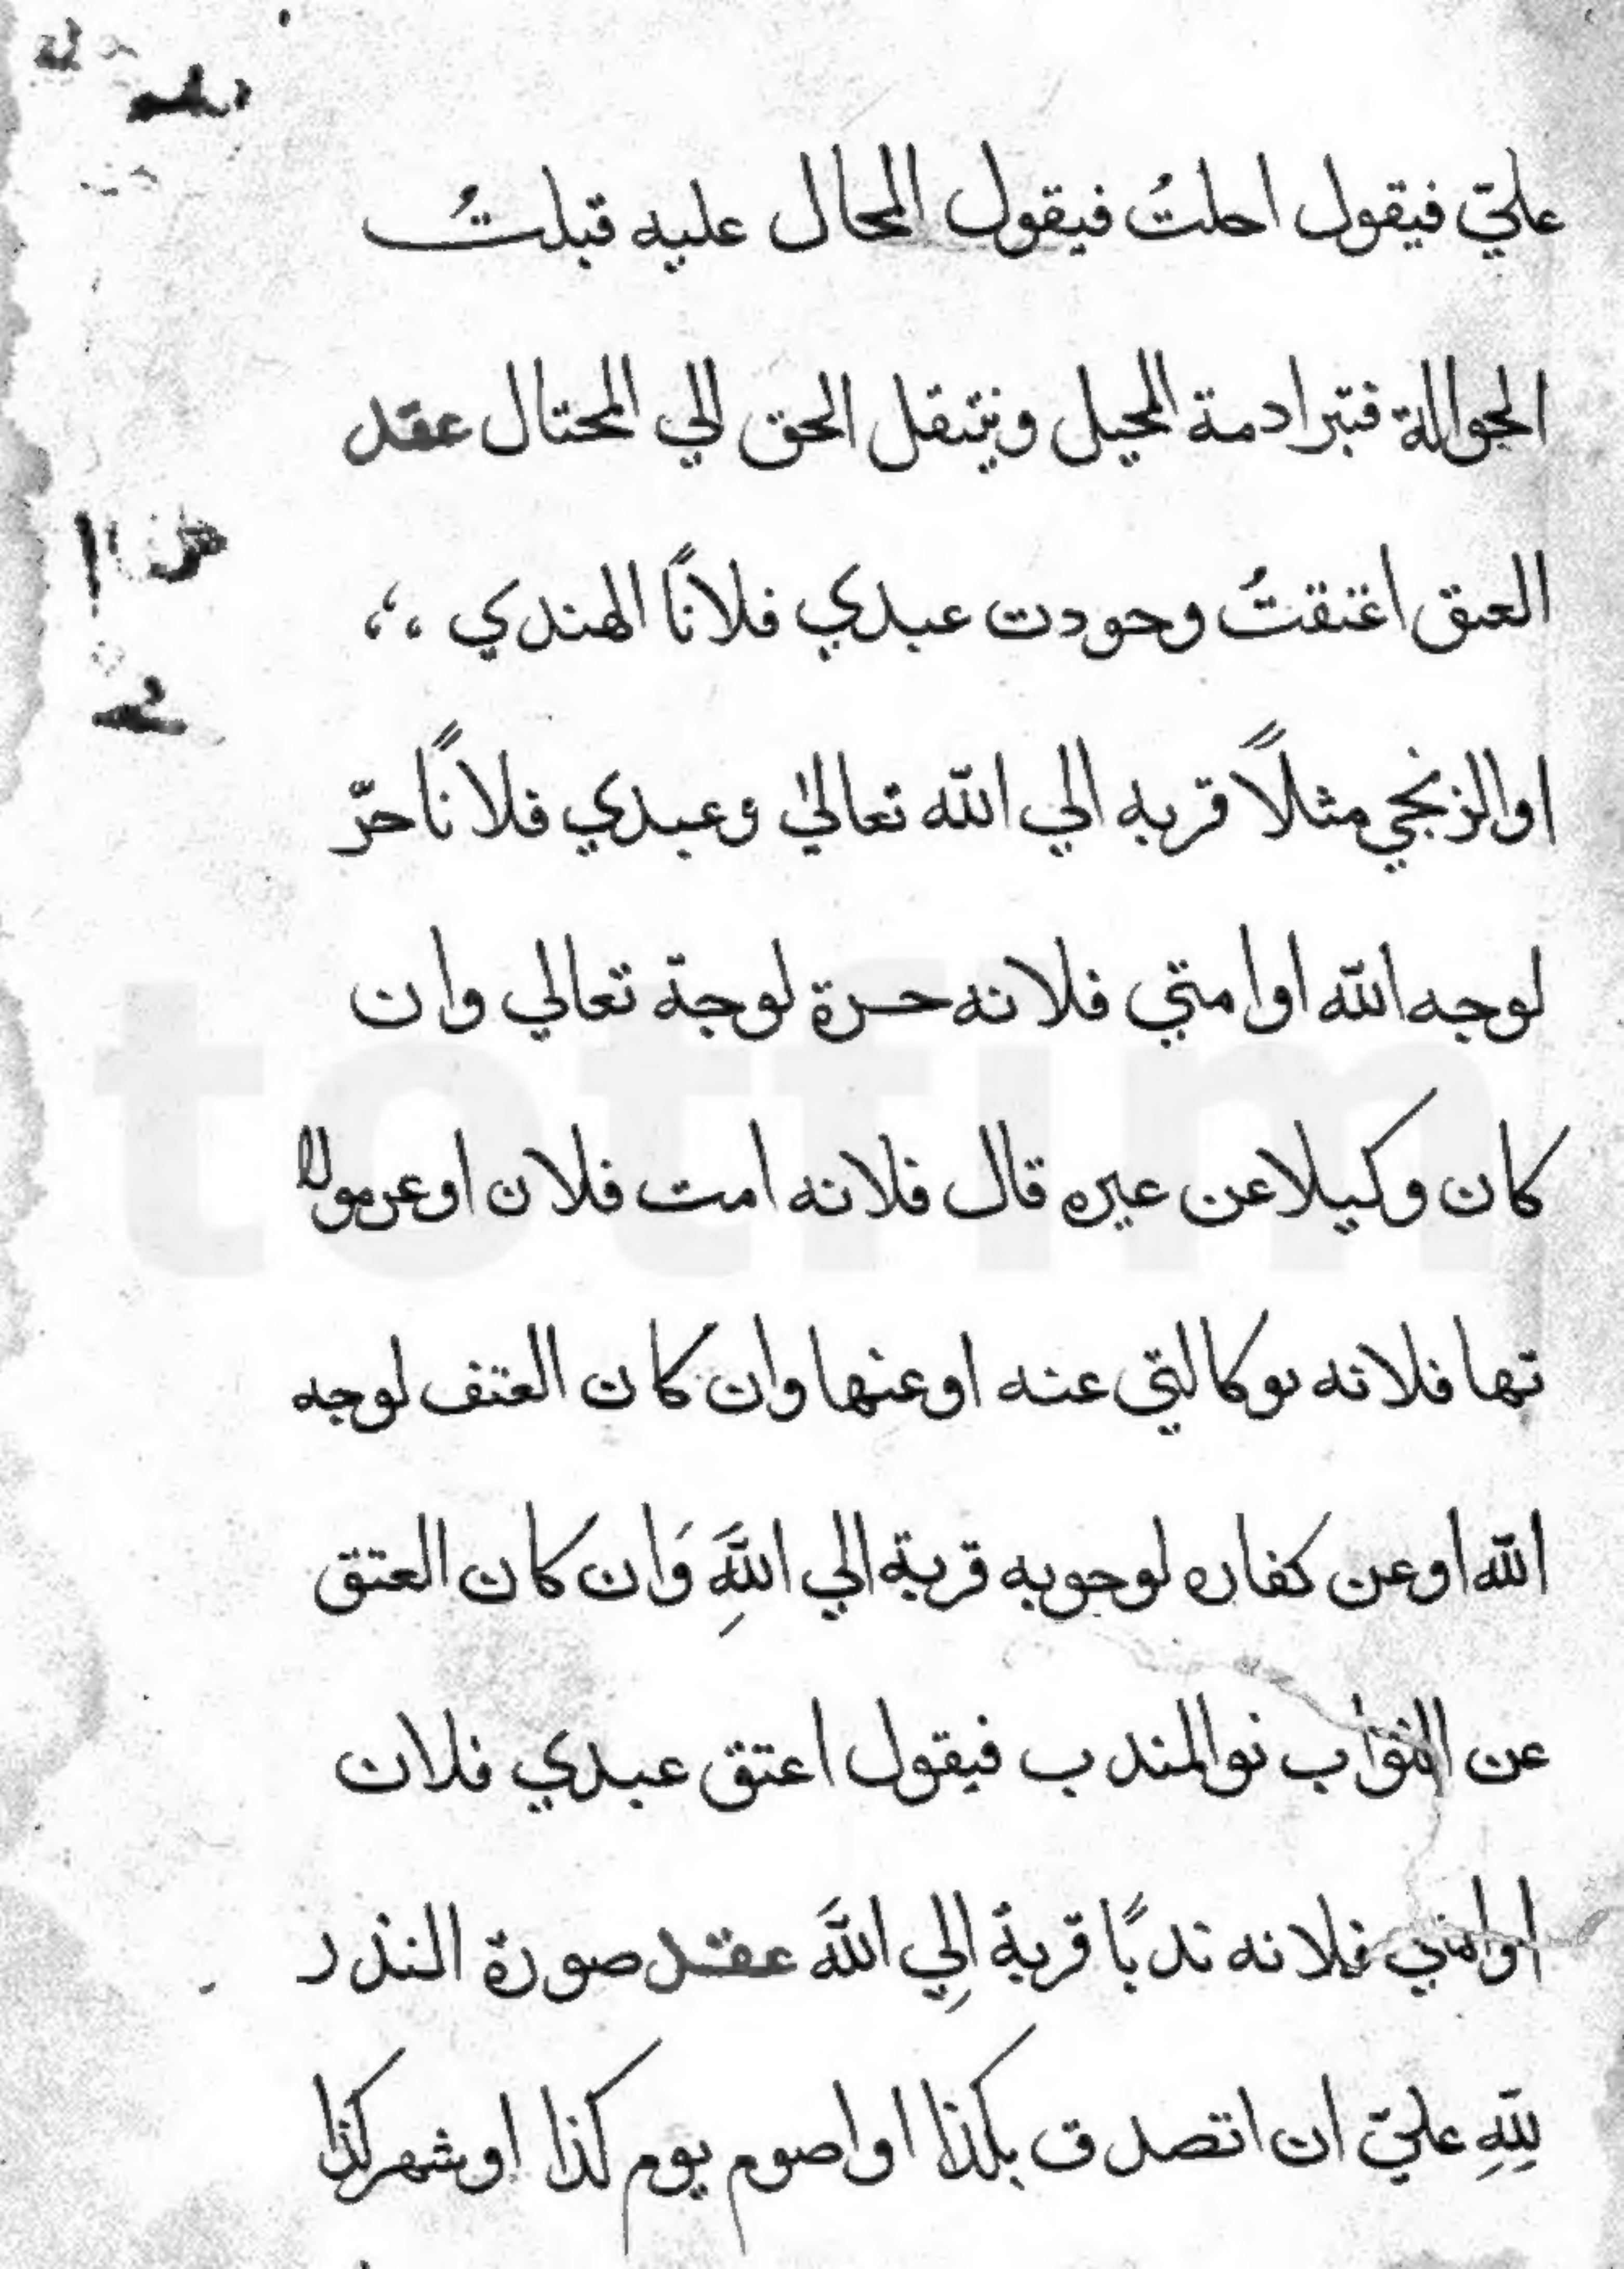 عليّ فيقول احلتُ فيقول المحال عليه قبلتُ
الحوالة فتبرا دمة المحيل وينتقل الحق الي المحتال عقد
العتق اعتقتُ وحودت عبدي فلانًا الهندي
او الزنجي مثلًا قربه الي الله تعالىٰ وعبدي فلانًا حرّ
لوجه الله او امتي فلانه حرة لوجة تعالي وان
كان وكيلا عن عيره قال فلانه امت فلان او عن مولا
تها فلانه بوكالتي عنه او عنها وان كان العتف لوجه
الله او عن كفاره لوجوبه قربة الي اللَّهِ وَان كان العتق
عن الثواب نوالمندب فيقول اعتق عبدي فلان
او امتي فلانه ندبًا قربة اِلي اللَّه عقد صورة النذر
للّهِ عليّ ان اتصدق بكذا او اصوم يوم كذا او شهر كذا
totfim